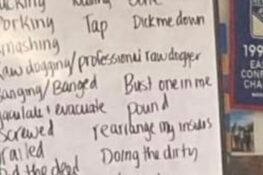 Porking Tap Dick me down
smashing
Raw dogging/professional raw dogger
Banging/Banged Bust one in me
ejaculate & evacuate pound
Screwed rearrange my insides
railed Doing the dirty
did the deed
199
EAS
CONF
CHA